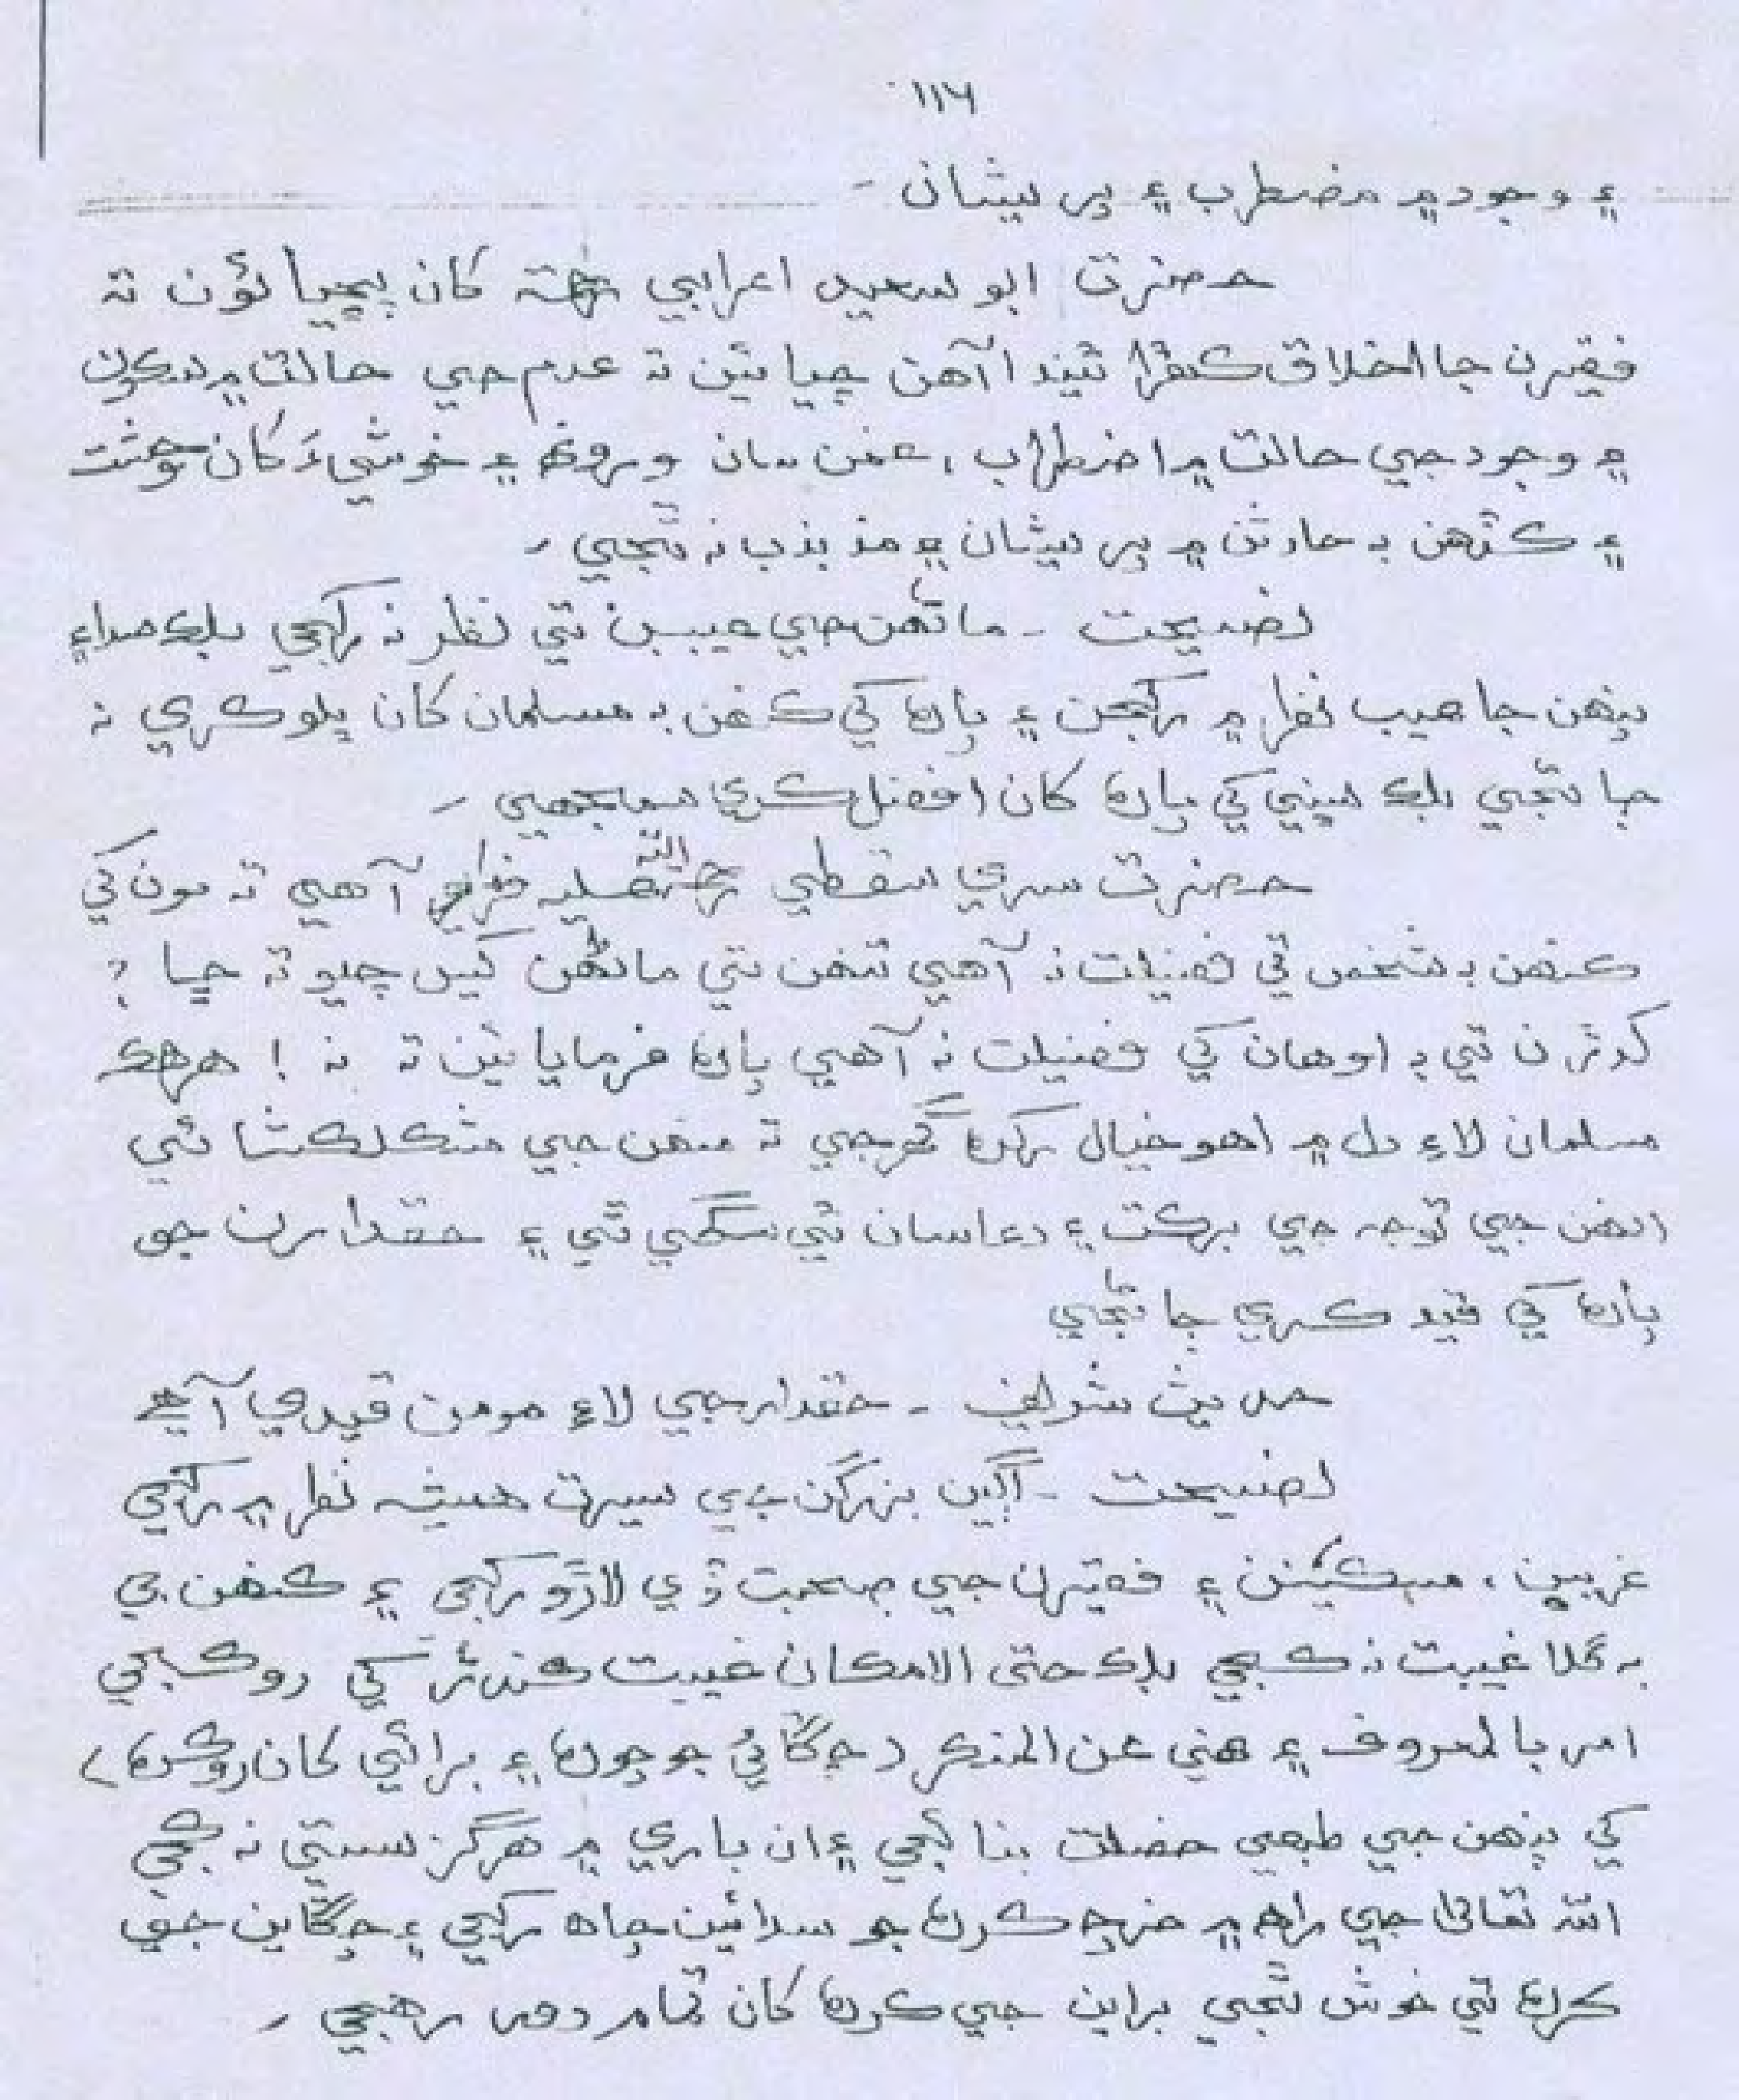 ۱۱٦
۽ وجود ۾ مضطرب ۽ پريشان -
حضرت ابو سعيد اعرابي رحمة کان پڇيائون ته
فقيرن جا اخلاق ڪهڙا ٿيندا آهن چيائين ته عدم جي حالت ۾ سڪون
۽ وجود جي حالت ۾ اضطراب، غمن سان ورونهه ۽ خوشيءَ کان وحشت
۽ ڪڏهن به حادثن ۾ پريشان ۽ مذبذب نه ٿجي -
نصيحت - ماڻهن جي عيبن تي نظر نه رکجي بلڪ صدائي
پنهن جا عيب نظر ۾ رکجن ۽ پاڻ کي ڪنهن به مسلمان کان ڀلو ڪري نه
ڄاڻجي بلڪ سڀني کي پاڻ کان افضل ڪري سمجهجي -
حضرت سري سقطي رحمة الله عليه فرمايو آهي ته مون کي
ڪنهن به شخص تي فضيلت نه آهي تنهن تي ماڻهن کيس چيو ته ڇا ؟
کدڙن تي به اوهان کي فضيلت نه آهي پاڻ فرمايائين ته نه ! هر هڪ
مسلمان لاءِ دل ۾ اهو خيال رکڻ گهرجي ته منهن جي مشڪلڪشائي
انهن جي توجه جي برڪت ۽ دعا سان ٿي سگهي ٿي ۽ حقدارن جو
پاڻ کي قيد ڪري ڄاڻجي
حديث شريف - حقدار جي لاءِ مومن قيدي آهي
نصيحت - اڳين بزرگن جي سيرت هميشه نظر ۾ رکجي
غريبن، مسڪينن ۽ فقيرن جي صحبت ڏي لاڙو رکجي ۽ ڪنهن جي
به گلا غيبت نه ڪجي بلڪ حتى الامڪان غيبت ڪندڙ کي روڪجي
امر بالمعروف ۽ نهي عن المنڪر (چڱائي جو چوڻ ۽ برائي کان روڪڻ)
کي پنهن جي طبعي خصلت بنائجي ۽ ان باري ۾ هرگز سستي نه ڪجي
الله تعالى جي راهه ۾ خرچ ڪرڻ جو سدائين چاهه رکجي ۽ چڱاين جي
ڪرڻ تي خوش ٿجي براين جي ڪرڻ کان تمام دور رهجي -